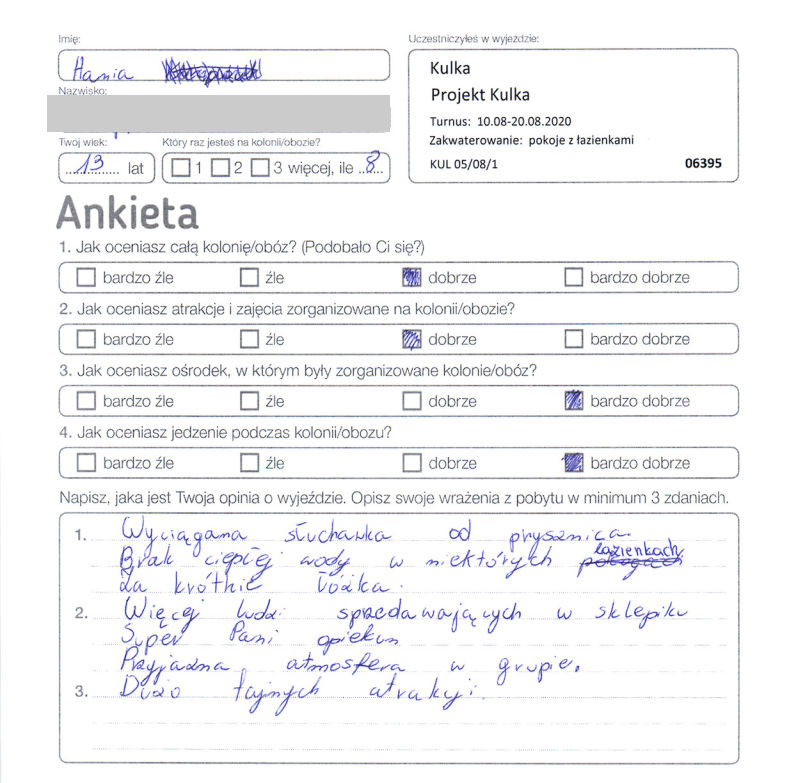 Imię:
Hania
Nazwisko:
Twój wiek:
13 lat
Który raz jesteś na kolonii/obozie?
1 2 3 więcej, ile 8
Uczestniczyłeś w wyjeździe:
Kulka
Projekt Kulka
Turnus: 10.08-20.08.2020
Zakwaterowanie: pokoje z łazienkami
KUL 05/08/1 06395
Ankieta
1. Jak oceniasz całą kolonię/obóz? (Podobało Ci się?)
bardzo źle źle dobrze bardzo dobrze
2. Jak oceniasz atrakcje i zajęcia zorganizowane na kolonii/obozie?
bardzo źle źle dobrze bardzo dobrze
3. Jak oceniasz ośrodek, w którym były zorganizowane kolonie/obóz?
bardzo źle źle dobrze bardzo dobrze
4. Jak oceniasz jedzenie podczas kolonii/obozu?
bardzo źle źle dobrze bardzo dobrze
Napisz, jaka jest Twoja opinia o wyjeździe. Opisz swoje wrażenia z pobytu w minimum 3 zdaniach.
1. Wyciągana słuchawka od prysznica.
Brak ciepłej wody w niektórych łazienkach
Za krótkie łóżka.
2. Więcej ludzi sprzedawających w sklepiku
Super Pani opiekun
Przyjazna atmosfera w grupie.
3. Dużo fajnych atrakcji.